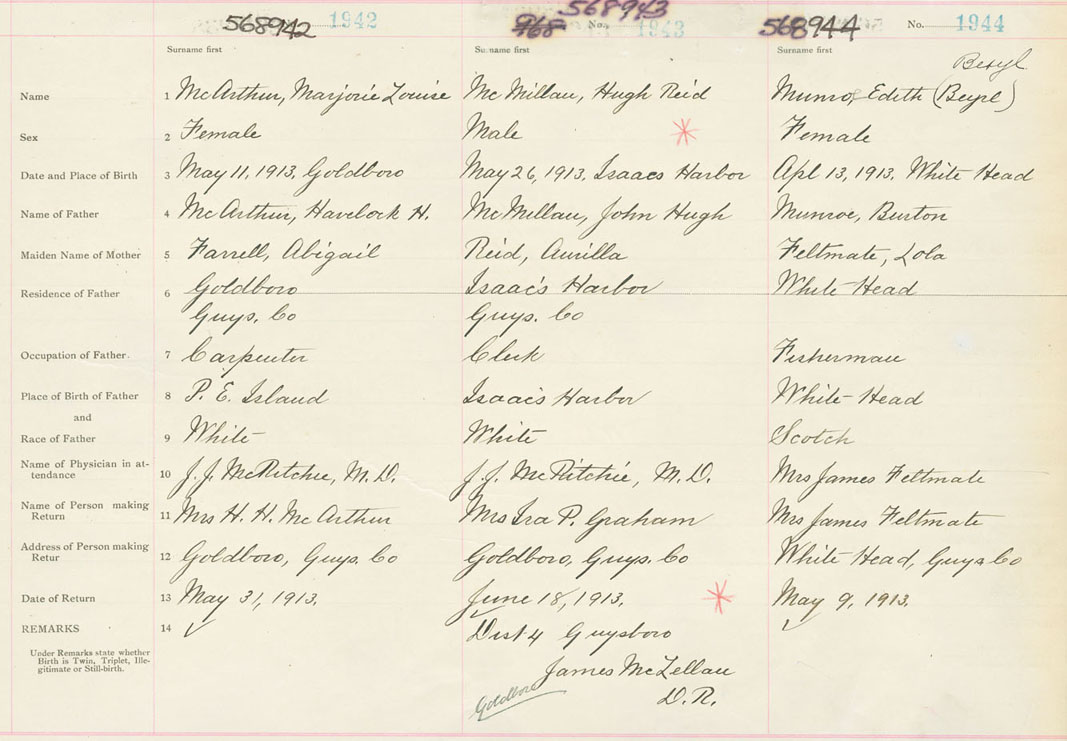 568942 1942 568943 968 No. 1943 568944 No. 1944
Surname first Surname first Surname first
Beryl
Name 1 McArthur, Marjorie Louise McMillan, Hugh Reid Munro, Edith (Beryl)
Sex 2 Female Male Female
Date and Place of Birth 3 May 11, 1913, Goldboro May 26, 1913, Isaacs Harbor Apl 13, 1913, White Head
Name of Father 4 McArthur, Havelock H. McMillan, John Hugh Munroe, Burton
Maiden Name of Mother 5 Farrell, Abigail Reid, Aurilla Feltmate, Lola
Residence of Father 6 Goldboro Isaac's Harbor White Head
Guys. Co Guys. Co
Occupation of Father. 7 Carpenter Clerk Fisherman
Place of Birth of Father 8 P. E. Island Isaac's Harbor White Head
and
Race of Father 9 White White Scotch
Name of Physician in at-
tendance 10 J. J. McRitchie, M. D. J. J. McRitchie, M. D. Mrs James Feltmate
Name of Person making
Return 11 Mrs H. H. McArthur Mrs Ira P. Graham Mrs James Feltmate
Address of Person making
Retur 12 Goldboro, Guys. Co Goldboro, Guys. Co White Head, Guys Co
Date of Return 13 May 31, 1913. June 18, 1913. May 9, 1913.
REMARKS 14 Dist 4 Guysboro
Under Remarks state whether
Birth is Twin, Triplet, Ille-
gitimate or Still-birth.
James McLellan
Goldboro D. R.